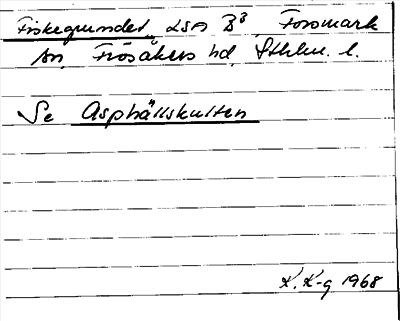 Fiskegrundet, LSA B³, Forsmark
sn, Frösåkers hd, Sthlm. l.
Se Asphällskulten
K. K-g 1968